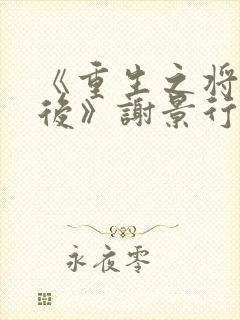 《重生之将
後》謝景行
永夜零